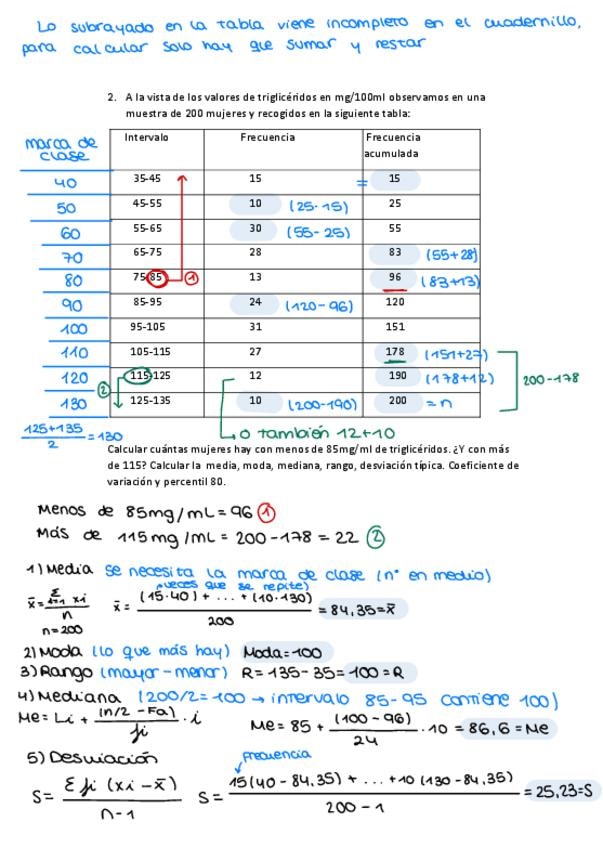 Lo subrayado en la tabla viene incompleto en el cuadernillo,
para calcular solo hay que sumar y restar
2. A la vista de los valores de triglicéridos en mg/100ml observamos en una
muestra de 200 mujeres y recogidos en la siguiente tabla:
marca de clase Intervalo Frecuencia Frecuencia acumulada
40 35-45 15 = 15
50 45-55 10 (25-15) 25
60 55-65 30 (55-25) 55
70 65-75 28 83 (55+28)
80 75-85 ① 13 96 (83+13)
90 85-95 24 (120-96) 120
100 95-105 31 151
110 105-115 27 178 (151+27)
120 115-125 12 190 (178+12) 200-178
② 130 125-135 10 (200-190) 200 = n
125+135/2 = 130 o también 12+10
Calcular cuántas mujeres hay con menos de 85mg/ml de triglicéridos. ¿Y con más
de 115? Calcular la media, moda, mediana, rango, desviación típica. Coeficiente de
variación y percentil 80.
Menos de 85mg/mL = 96 ①
Más de 115mg/mL = 200-178 = 22 ②
1) Media se necesita la marca de clase (nº en medio)
(veces que se repite)
x̄ = Σ xi / n x̄ = (15·40) + ... + (10·130) / 200 = 84,35 = x̄
n=200
2) Moda (lo que más hay) Moda=100
3) Rango (mayor - menor) R = 135-35 = 100 = R
4) Mediana (200/2 = 100 → intervalo 85-95 contiene 100)
Me = Li + (n/2 - Fa) / fi · i Me = 85 + (100-96) / 24 · 10 = 86,6 = Me
5) Desviación frecuencia
S = Σ fi (xi - x̄) / n-1 S = 15(40-84,35) + ... + 10(130-84,35) / 200-1 = 25,23=S